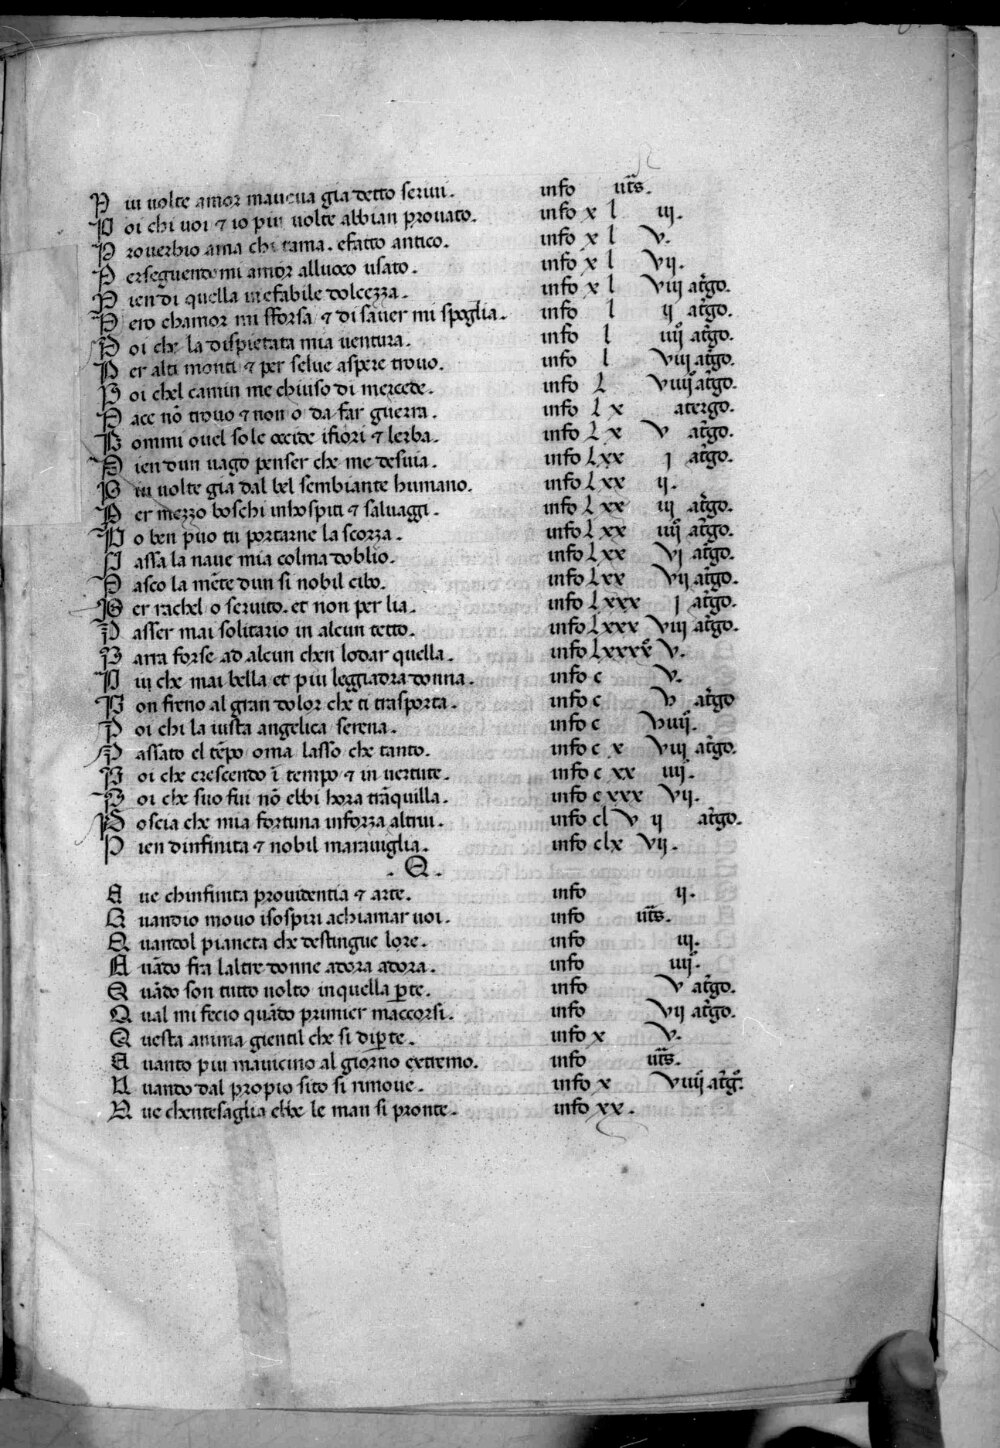 P iu uolte amor maueua gia detto scriui. info uts.
P oi chi uoi & io piu uolte abbian prouato. info x l iij.
P rouerbio ama chi tama. efatto antico. info x l v.
P erseguendomi amor alluoco usato. info x l vij.
P ien di quella inefabile dolcezza. info x l viij atgo.
P ero chamor mi sforsa & di sauer mi spoglia. info l ij atgo.
P oi che la dispietata mia uentura. info l iiijº atgo.
P er alti monti & per selue aspere trouo. info l viij atgo.
P oi chel camin me chiuso di mercede. info l viiijº atgo.
P ace nō trouo & non o da far guerra. info l x atergo.
P ommi ouel sole occide ifiori & lerba. info l x v atgo.
P ien dun uago penser che me desuia. info l xx j atgo.
P iu uolte gia dal bel sembiante humano. info l xx ij.
P er mezzo boschi inhospiti & saluaggi. info l xx iij atgo.
P o ben puo tu portarne la scorza. info l xx iiijº atgo.
P assa la naue mia colma doblio. info l xx vj atgo.
P asco la mēte dun si nobil cibo. info l xx vij atgo.
P er rachel o seruito. et non per lia. info l xxx j atgo.
P asser mai solitario in alcun tetto. info l xxx viij atgo.
P arra forse ad alcun chen lodar quella. info l xxxxº v.
P iu che mai bella et piu leggiadra donna. info c v.
P on freno al gran dolor che ti trasporta. info c v atgo
P oi chi la iusta angelica serena. info c viiijº.
P assato el tēpo oma lasso che tanto. info c x viij atgo.
P oi che crescendo ī tempo & in uertute. info c xx iiijº.
P oi che suo fui nō ebbi hora trāquilla. info c xxx vij.
P oscia che mia fortuna inforza altrui. info cl v ij atgo.
P ien dinfinita & nobil marauiglia. info clx vij.
. Q .
Q ue chinfinita prouidentia & arte. info ij.
Q uandio mouo isospiri achiamar uoi. info uts.
Q uandol pianeta che destingue lore. info iij.
Q uādo fra laltre donne adora adora. info iiijº.
Q uādo son tutto uolto inquella pte. info v atgo.
Q ual mi fecio quādo primier maccorsi. info vij atgo.
Q uesta anima gientil che si dipte. info x v.
Q uanto piu mauicino al giorno extremo. info uts.
Q uando dal proprio sito si rimoue. info x viiijº atgº.
Q ue chentesaglia ebbe le man si pronte. info xx.